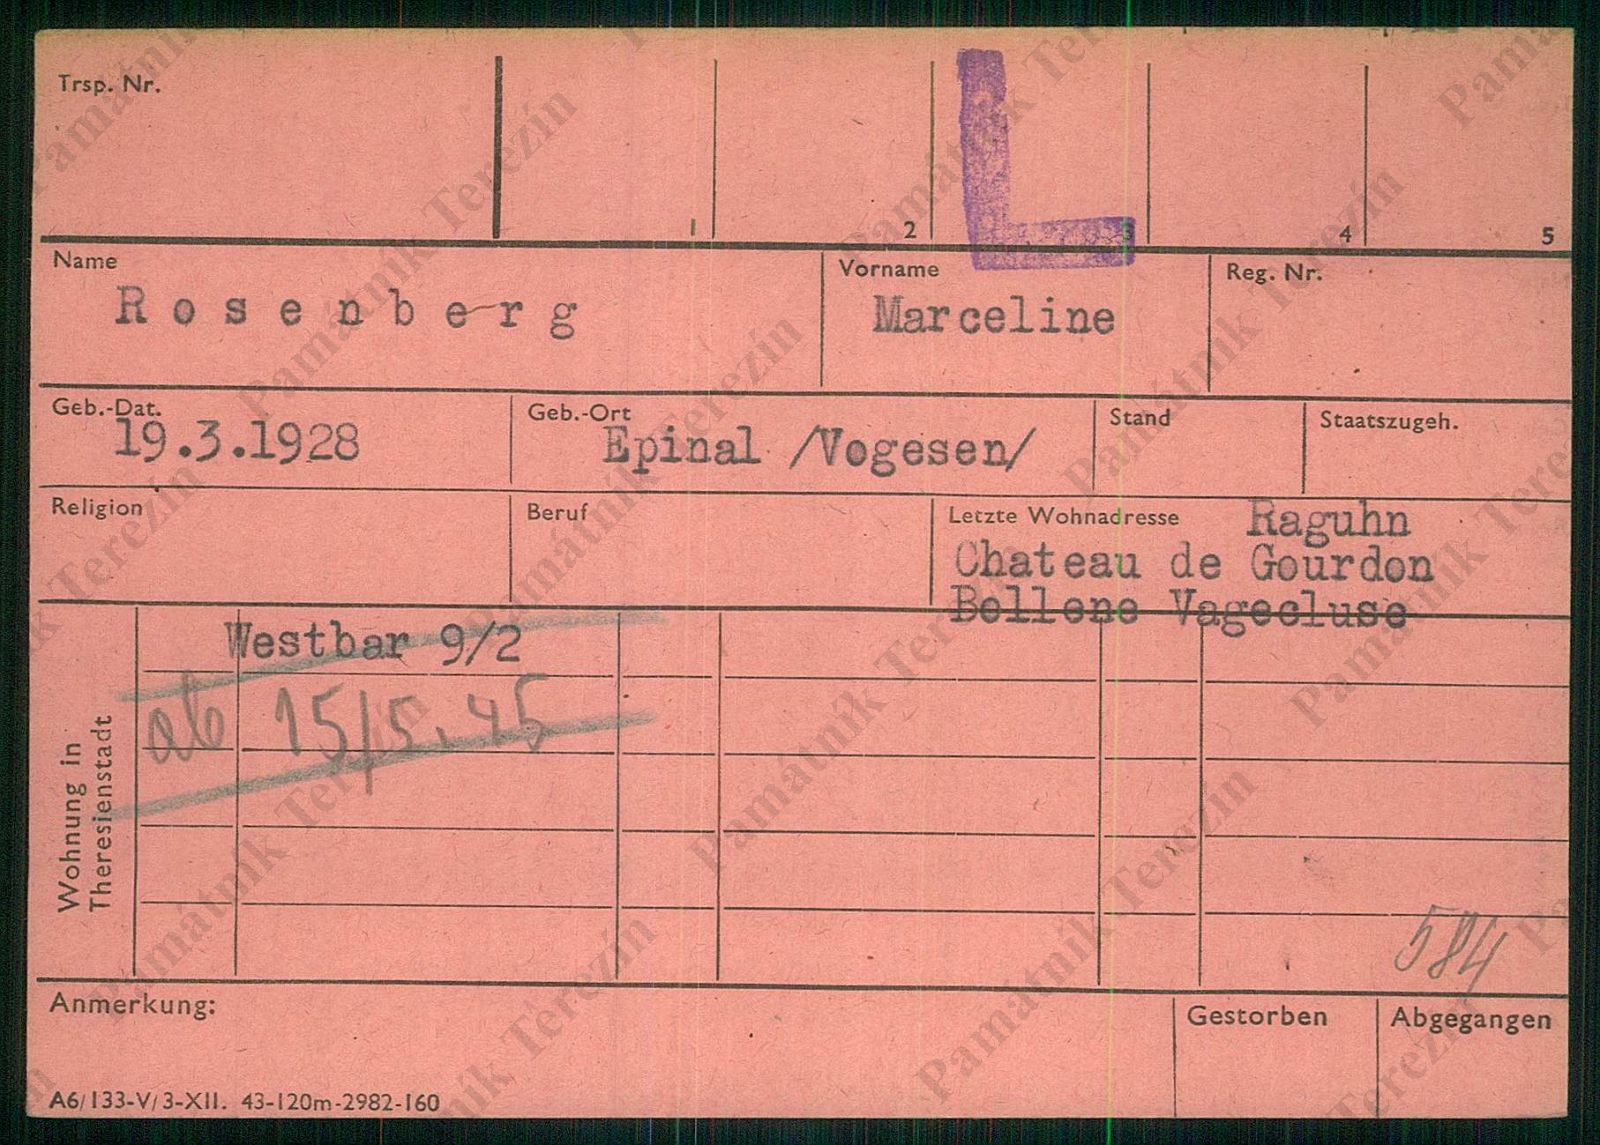 Trsp. Nr.
L
1 2 3 4 5
Name
Rosenberg
Vorname
Marceline
Reg. Nr.
Geb.-Dat.
19.3.1928
Geb.-Ort
Epinal /Vogesen/
Stand
Staatszugeh.
Religion
Beruf
Letzte Wohnadresse Raguhn
Chateau de Gourdon
Bollene Vagecluse
Wohnung in
Theresienstadt
Westbar 9/2
ab 15/5.45
584
Anmerkung:
Gestorben
Abgegangen
A6/133-V/3-XII. 43-120m-2982-160
Památník Terezín